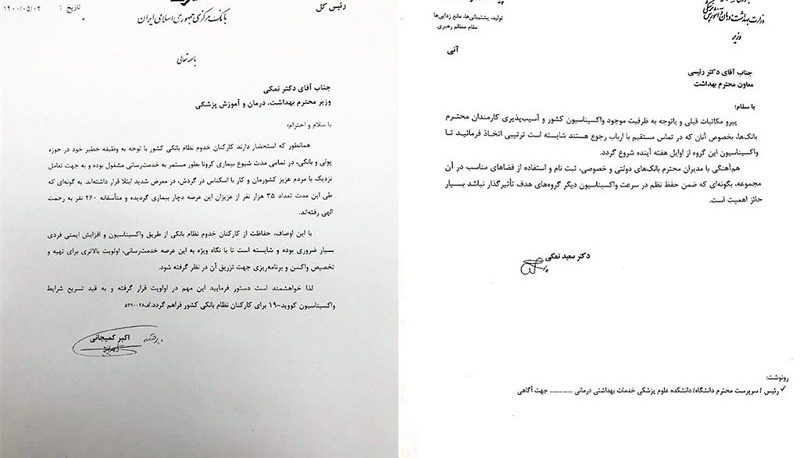 رئیس کل
بانک مرکزی جمهوری اسلامی ایران
تاریخ : ۱۴۰۰/۰۵/۰۲
باسمه تعالی
جناب آقای دکتر نمکی
وزیر محترم بهداشت، درمان و آموزش پزشکی
با سلام و احترام؛
همانطور که استحضار دارند کارکنان خدوم نظام بانکی کشور با توجه به وظیفه خطیر خود در حوزه
پولی و بانکی، در تمامی مدت شیوع بیماری کرونا بطور مستمر به خدمت‌رسانی مشغول بوده و به جهت تعامل
نزدیک با مردم عزیز کشورمان و کار با اسکناس در گردش، در معرض شدید ابتلا قرار داشته‌اند. به گونه‌ای که
طی این مدت تعداد ۳۵ هزار نفر از عزیزان این عرصه دچار بیماری گردیده و متأسفانه ۲۶۰ نفر به رحمت
الهی رفته‌اند.
با این اوصاف، حفاظت از کارکنان خدوم نظام بانکی از طریق واکسیناسیون و افزایش ایمنی فردی
بسیار ضروری بوده و شایسته است تا با نگاه ویژه به این عرصه خدمت‌رسانی، اولویت بالاتری برای تهیه و
تخصیص واکسن و برنامه‌ریزی جهت تزریق آن در نظر گرفته شود.
لذا خواهشمند است دستور فرمایید این مهم در اولویت قرار گرفته و به قید تسریع شرایط
واکسیناسیون کووید-۱۹ برای کارکنان نظام بانکی کشور فراهم گردد.
اکبر کمیجانی
وزارت بهداشت، درمان و آموزش پزشکی
وزیر
تولید، پشتیبانی‌ها، مانع زدایی‌ها
مقام معظم رهبری
آنی
جناب آقای دکتر رئیسی
معاون محترم بهداشت
با سلام؛
پیرو مکاتبات قبلی و باتوجه به ظرفیت موجود واکسیناسیون کشور و آسیب‌پذیری کارمندان محترم
بانک‌ها، بخصوص آنان که در تماس مستقیم با ارباب رجوع هستند شایسته است ترتیبی اتخاذ فرمائید تا
واکسیناسیون این گروه از اوایل هفته آینده شروع گردد.
هم‌آهنگی با مدیران محترم بانک‌های دولتی و خصوصی، ثبت نام و استفاده از فضاهای مناسب در آن
مجموعه، بگونه‌ای که ضمن حفظ نظم در سرعت واکسیناسیون دیگر گروه‌های هدف تأثیرگذار نباشد بسیار
حائز اهمیت است.
دکتر سعید نمکی
رونوشت:
✓ رئیس / سرپرست محترم دانشگاه/ دانشکده علوم پزشکی خدمات بهداشتی درمانی ............ جهت آگاهی